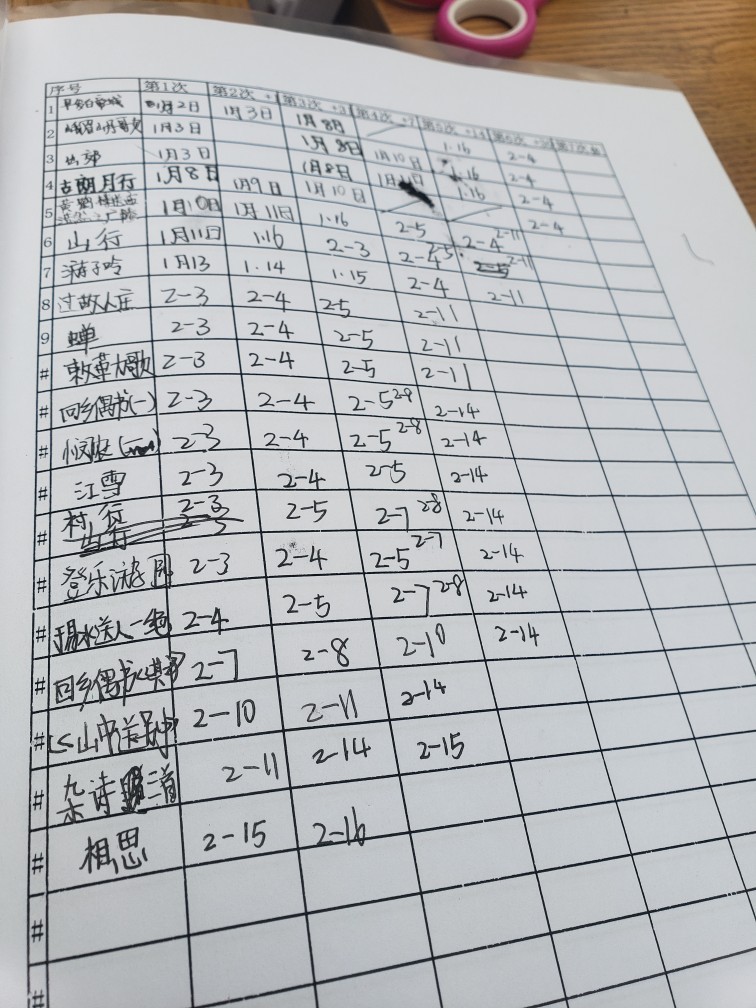 序号 第1次 第2次 +1 第3次 +3 第4次 +7 第5次 +14 第6次 第7次
1 早发白帝城 1月2日 1月3日 1月8日
2 峨眉山月歌 1月3日 1月8日 1.16 2-4
3 出郊 1月3日 1月8日 1月10日 1.16 2-4
4 古朗月行 1月8日 1月9日 1月10日 1.16 2-4
5 1月10日 1月11日 1.16 2-5 2-4
6 山行 1月11日 1.16 2-3 2-4 2-5 2-4 2-11
7 游子吟 1月13 1.14 1.15 2-4 2-5 2-11
8 过故人庄 2-3 2-4 2-5 2-11 2-11
9 蝉 2-3 2-4 2-5 2-11
# 敕勒歌 2-3 2-4 2-5 2-11
# 回乡偶书(一) 2-3 2-4 2-5 2-9 2-14
# 2-3 2-4 2-5 2-8 2-14
# 江雪 2-3 2-4 2-5 2-14
# 村行 2-3 2-5 2-7 2-8 2-14
# 登乐游原 2-3 2-4 2-5 2-7 2-14
# 易水送人一绝 2-4 2-5 2-7 2-8 2-14
# 回乡偶书其 2-7 2-8 2-10 2-14
# 《山中送别》 2-10 2-11 2-14
# 杂诗三首 2-11 2-14 2-15
# 相思 2-15 2-16
#
#